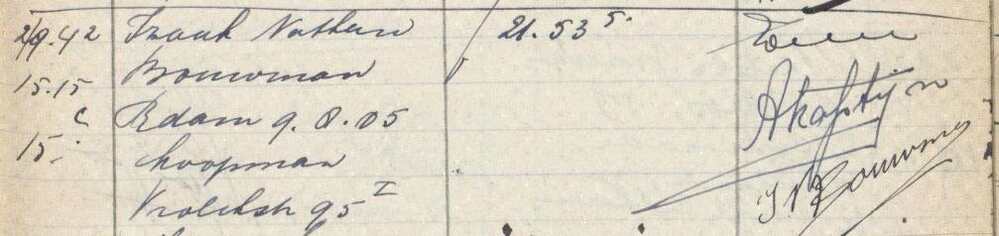 2/9.42 Izaak Nathan 21.53 5.
15.15 Bouwman
c Rdam 9.8.05 AKaptijn
15. koopman
95 I I N Bouwman